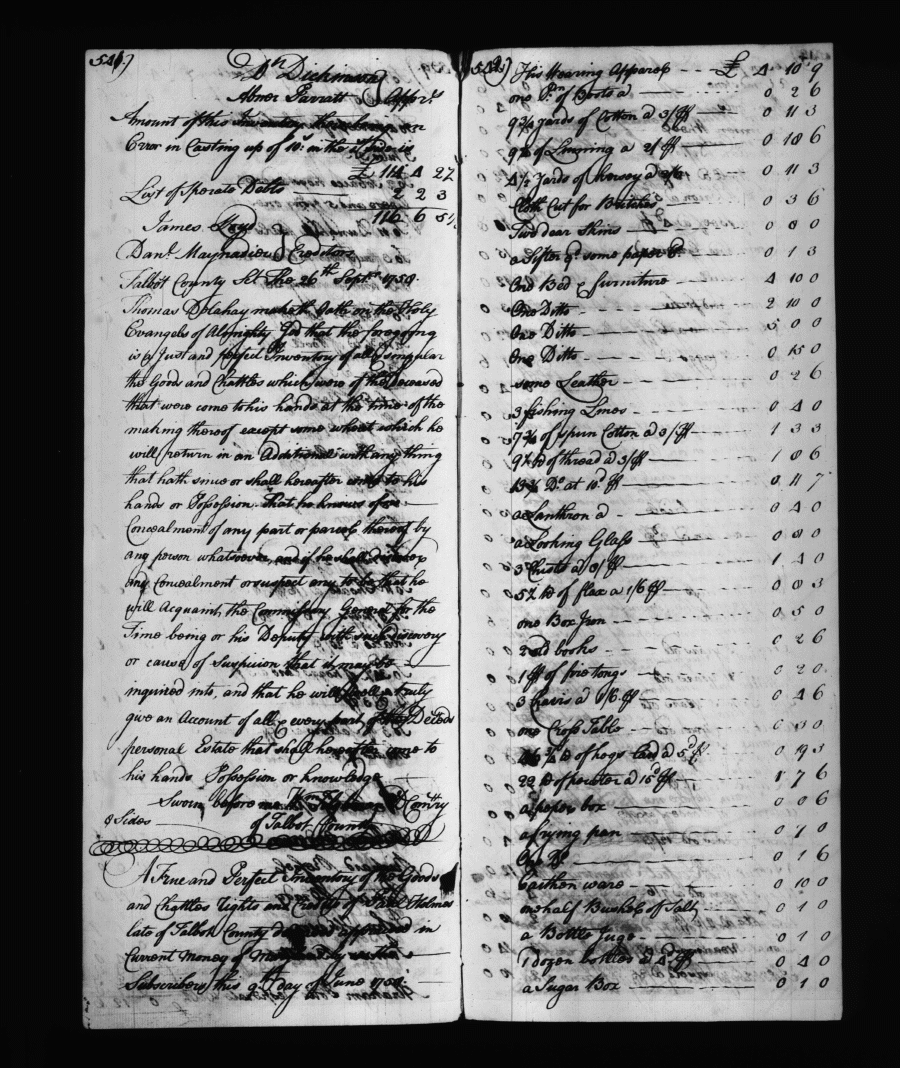 541)
Dickinson
Abner Parratt } Apprs
Amount of this Inventory there being an
Error in Casting up of 10s in the
£ 114 4 2½
List of sperate Debts 2 2 3
116 6 5½
James
Danl Maynadier } Creditors
Talbot County Sct The 26th Septr 1750.
Thomas Delahay maketh Oath on the Holy
Evangels of Almighty God that the foregoing
is a Just and perfect Inventory of all & singular
the Goods and Chattles which were of the deceased
that were come to his hands at the time of the
making thereof except some wheat which he
will return in an Additional with any thing
that hath since or shall hereafter come to his
hands or Possession. That he knows of no
Concealment of any part or parcel thereof by
any person whatsoever, and if he shall discover
any Concealment or suspect any to be that he
will Acquaint the Commissary General for the
Time being or his Deputy with such discovery
or cause of Suspicion that it may be
inquired into, and that he will well & truly
give an Account of all & every part of the Deceds
personal Estate that shall hereafter come to
his hands Possession or knowledge
Sworn before me Comry
Sides of Talbot County
A True and Perfect Inventory of the Goods
and Chattles Rights and Credits of Holmes
late of Talbot County deceased appraised in
Current Money of Maryland by us the
Subscribers this 9th day of June 1750.
542) His Wearing Apparel £ 4 10 9
one Pr of Boots a 0 2 6
9¾ yards of Cotton a 3/ 0 11 3
of Linning a 2/ 0 18 6
4½ Yards of Kersey a 0 11 3
Cloth Cut for Britches 0 3 6
Two dear Skins 0 8 0
a Sifter & some paper 0 1 3
One Bed & furniture 4 10 0
One Ditto 2 10 0
One Ditto 5 0 0
One Ditto 0 15 0
some Leather 0 2 6
3 fishing Lines 0 4 0
7¾ of spun Cotton a 3/ 1 3 3
of thread a 3/ 1 8 6
Do at 10d 0 11 7
a Lanthron a 0 4 0
a Looking Glass 0 8 0
3 Chists a 8/ 1 4 0
5½ lb of flax a 1/6 0 8 3
one Box Iron 0 5 0
2 old books 0 2 6
1 pr of fire tongs 0 2 0
3 Chairs a 1/6 0 4 6
one Cross Table
of hogs Lard a 5d 0 19 3
of pewter a 15d 1 7 6
a paper box 0 0 6
a frying pan 0 7 0
One Do 0 1 6
Earthen ware 0 10 0
one half Bushel of Salt 0 1 0
a Bottle Juge 0 1 0
1 dozen bottles a 4/ 0 4 0
a Sugar Box 0 1 0